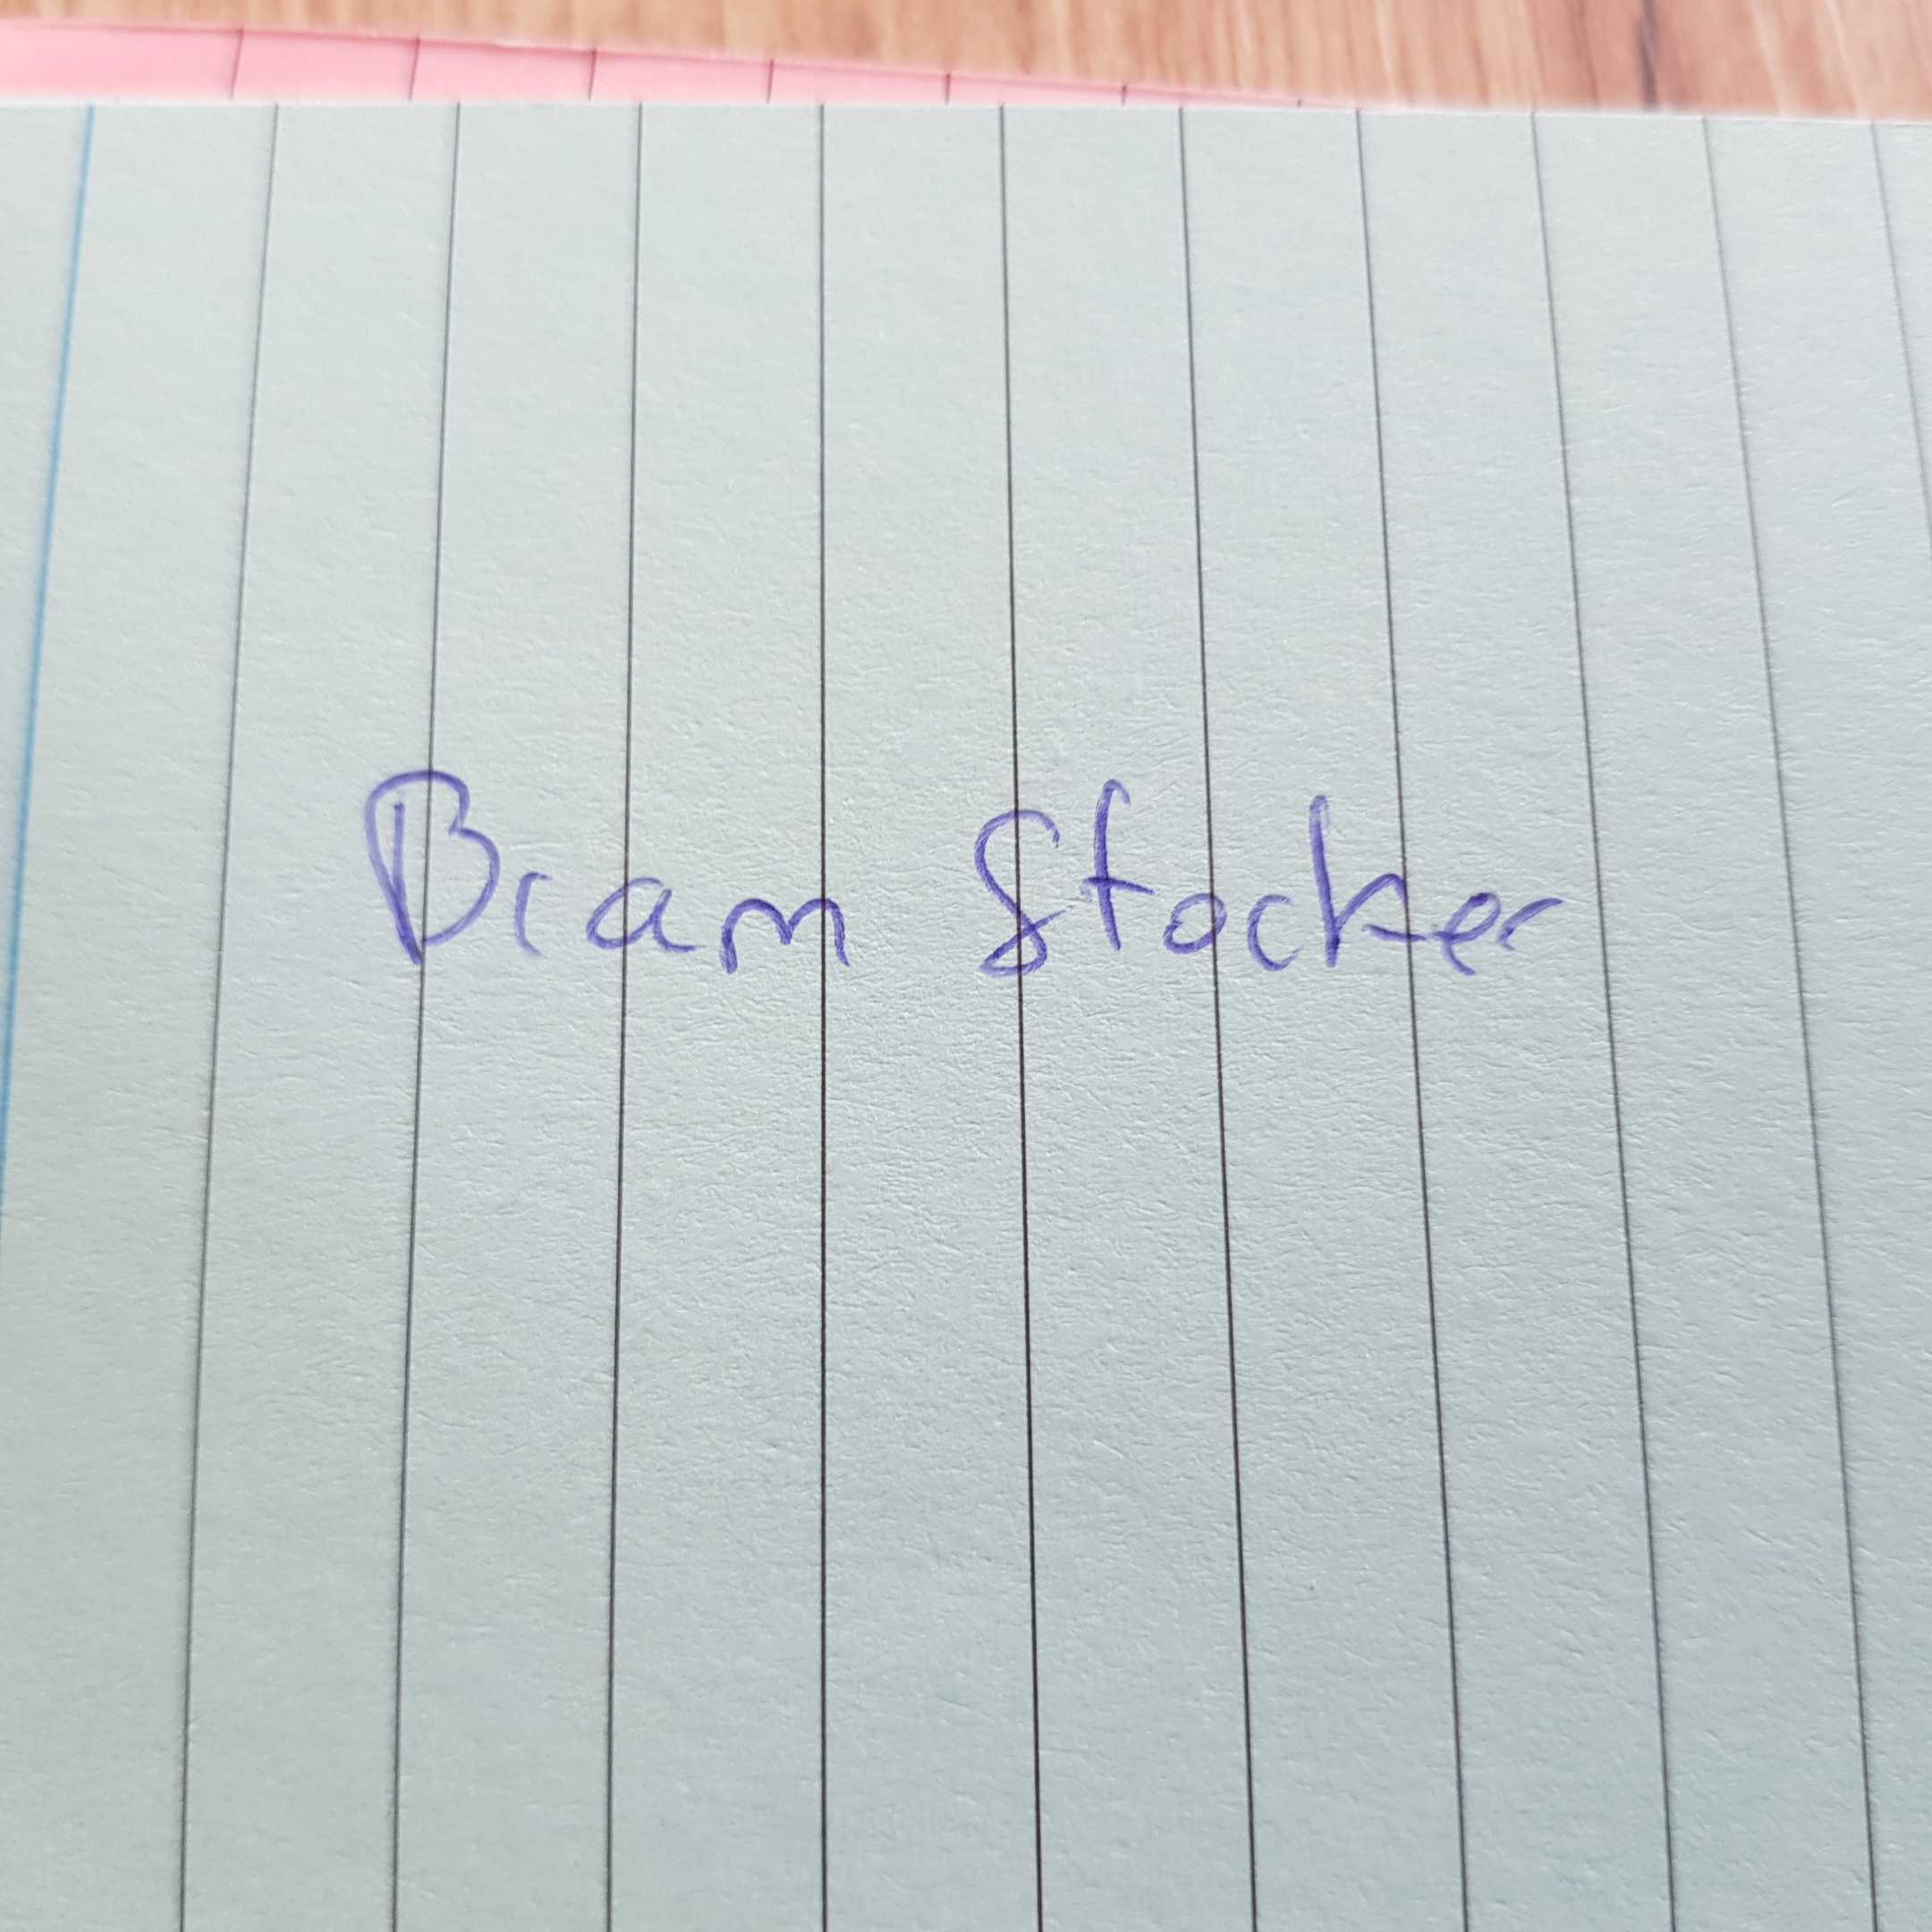 Bram Stocker